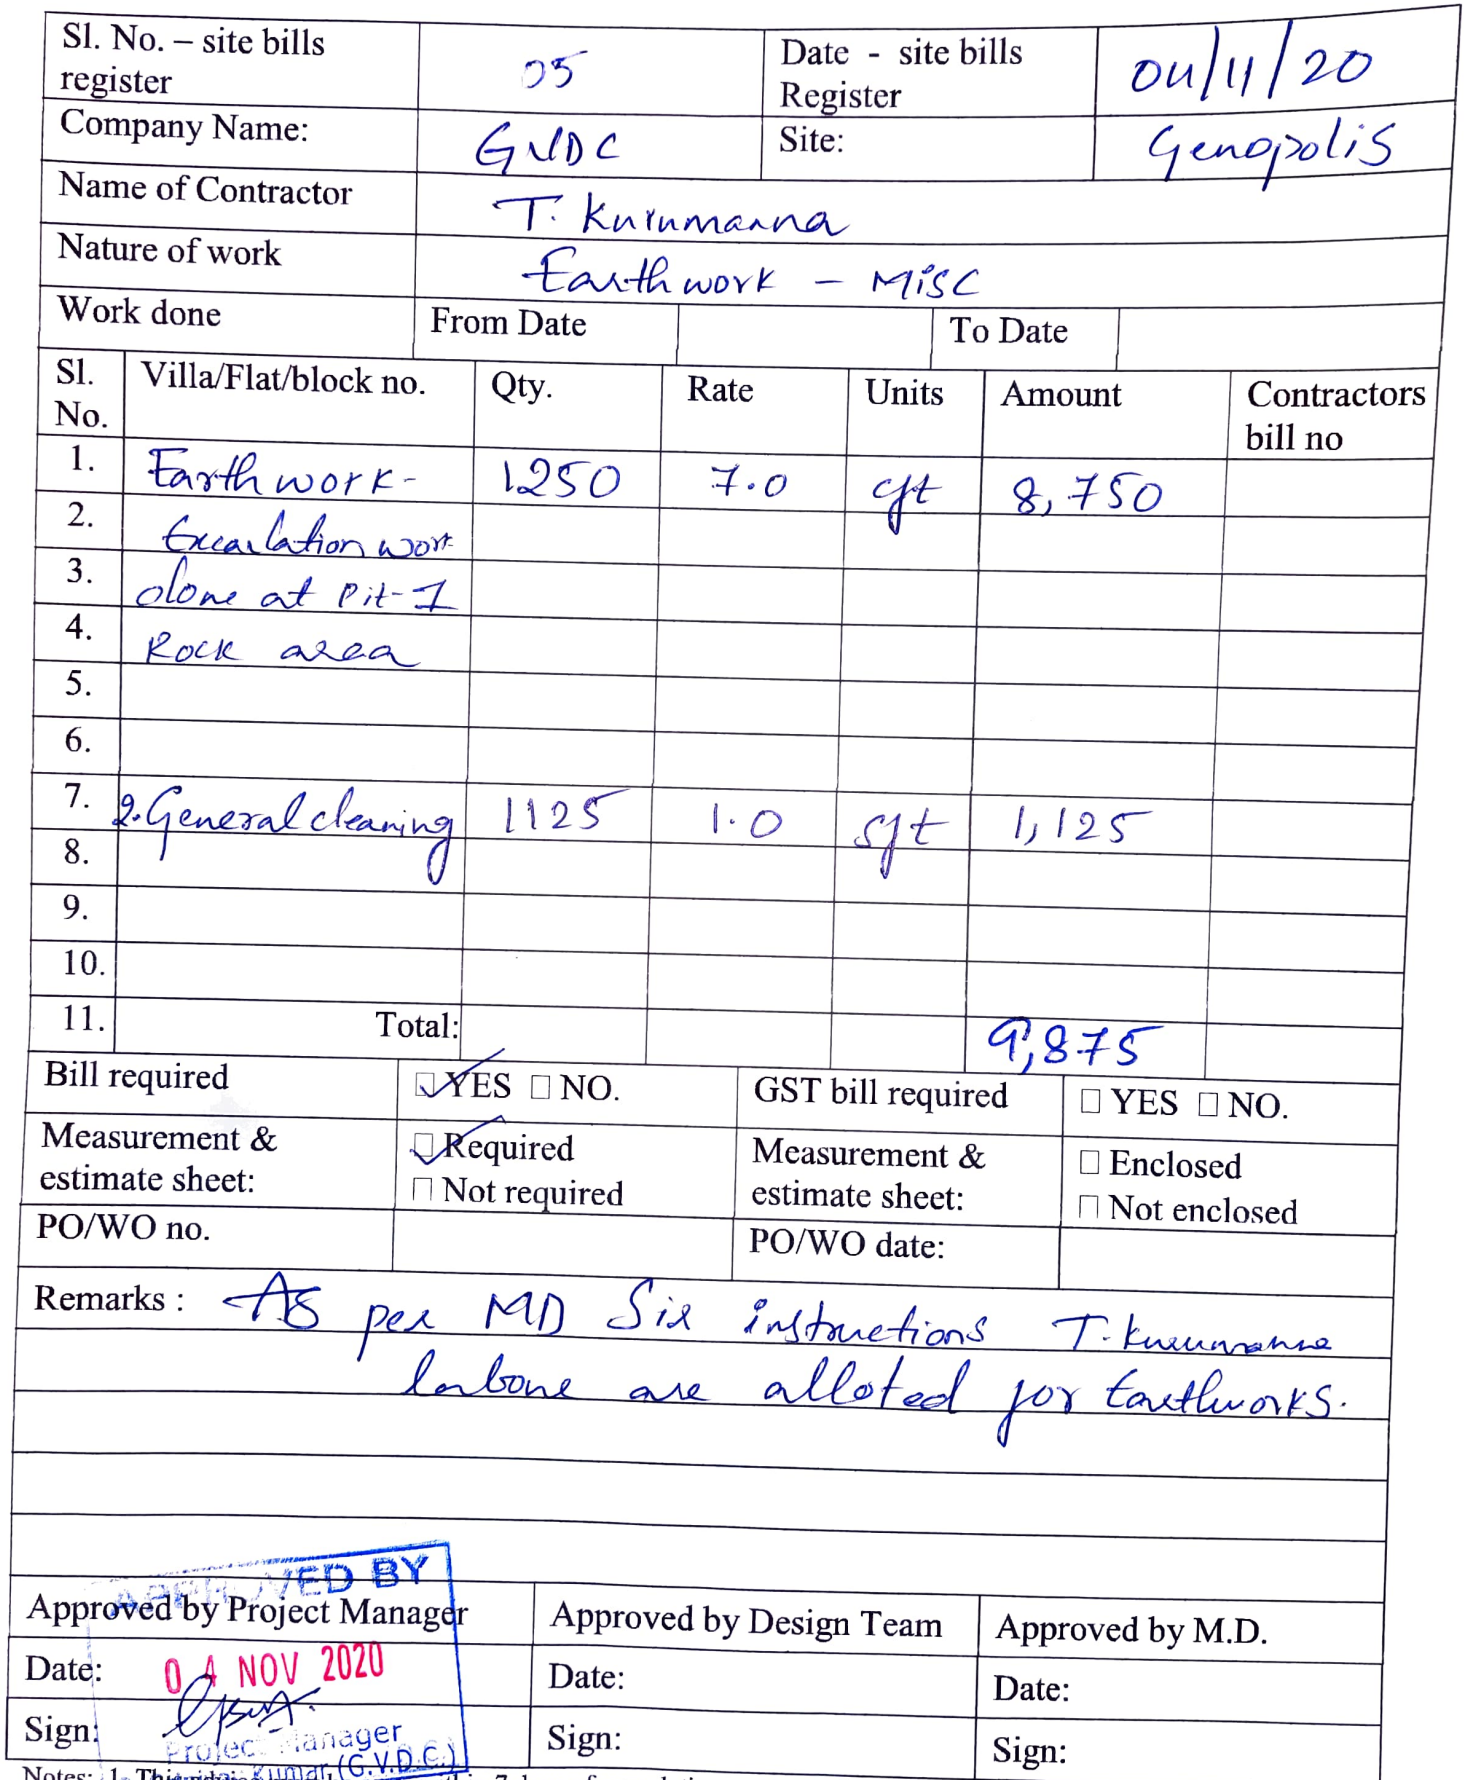 Sl. No. – site bills register 05 Date - site bills Register 04/11/20
Company Name: GVDC Site: Genopolis
Name of Contractor T. Kurumanna
Nature of work Earth work - MISC
Work done From Date To Date
Sl. No. Villa/Flat/block no. Qty. Rate Units Amount Contractors bill no
1. Earth work- 1250 7.0 cft 8,750
2. Excavlation work
3. done at Pit-1
4. Rock area
5.
6.
7. 2. General cleaning 1125 1.0 sft 1,125
8.
9.
10.
11. Total: 9,875
Bill required YES NO. GST bill required YES NO.
Measurement & estimate sheet: Required Not required Measurement & estimate sheet: Enclosed Not enclosed
PO/WO no. PO/WO date:
Remarks : As per MD Sir instructions T. Kurumanna
labour are alloted for Earthworks.
APPROVED BY
Approved by Project Manager Approved by Design Team Approved by M.D.
Date: 04 NOV 2020 Date: Date:
Sign: Sign: Sign:
Project Manager
Kumar (G.V.D.C.)
Notes: 1. This